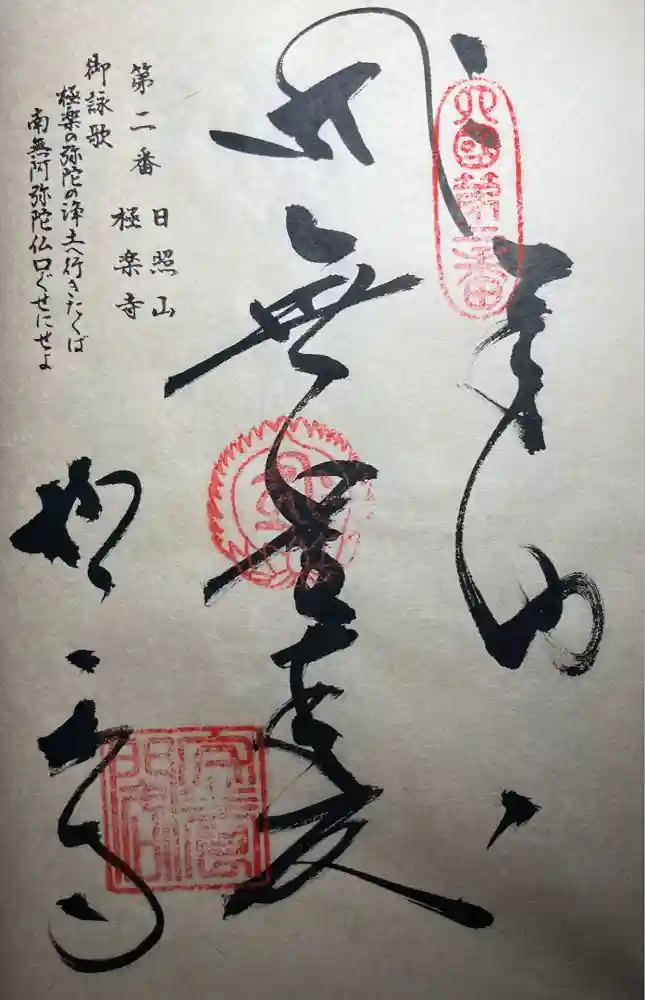 四国第二番
奉納
無量壽
第二番
日照山
極楽寺
御詠歌
極楽の弥陀の浄土へ行きたくば
南無阿弥陀仏口ぐせにせよ
極楽寺